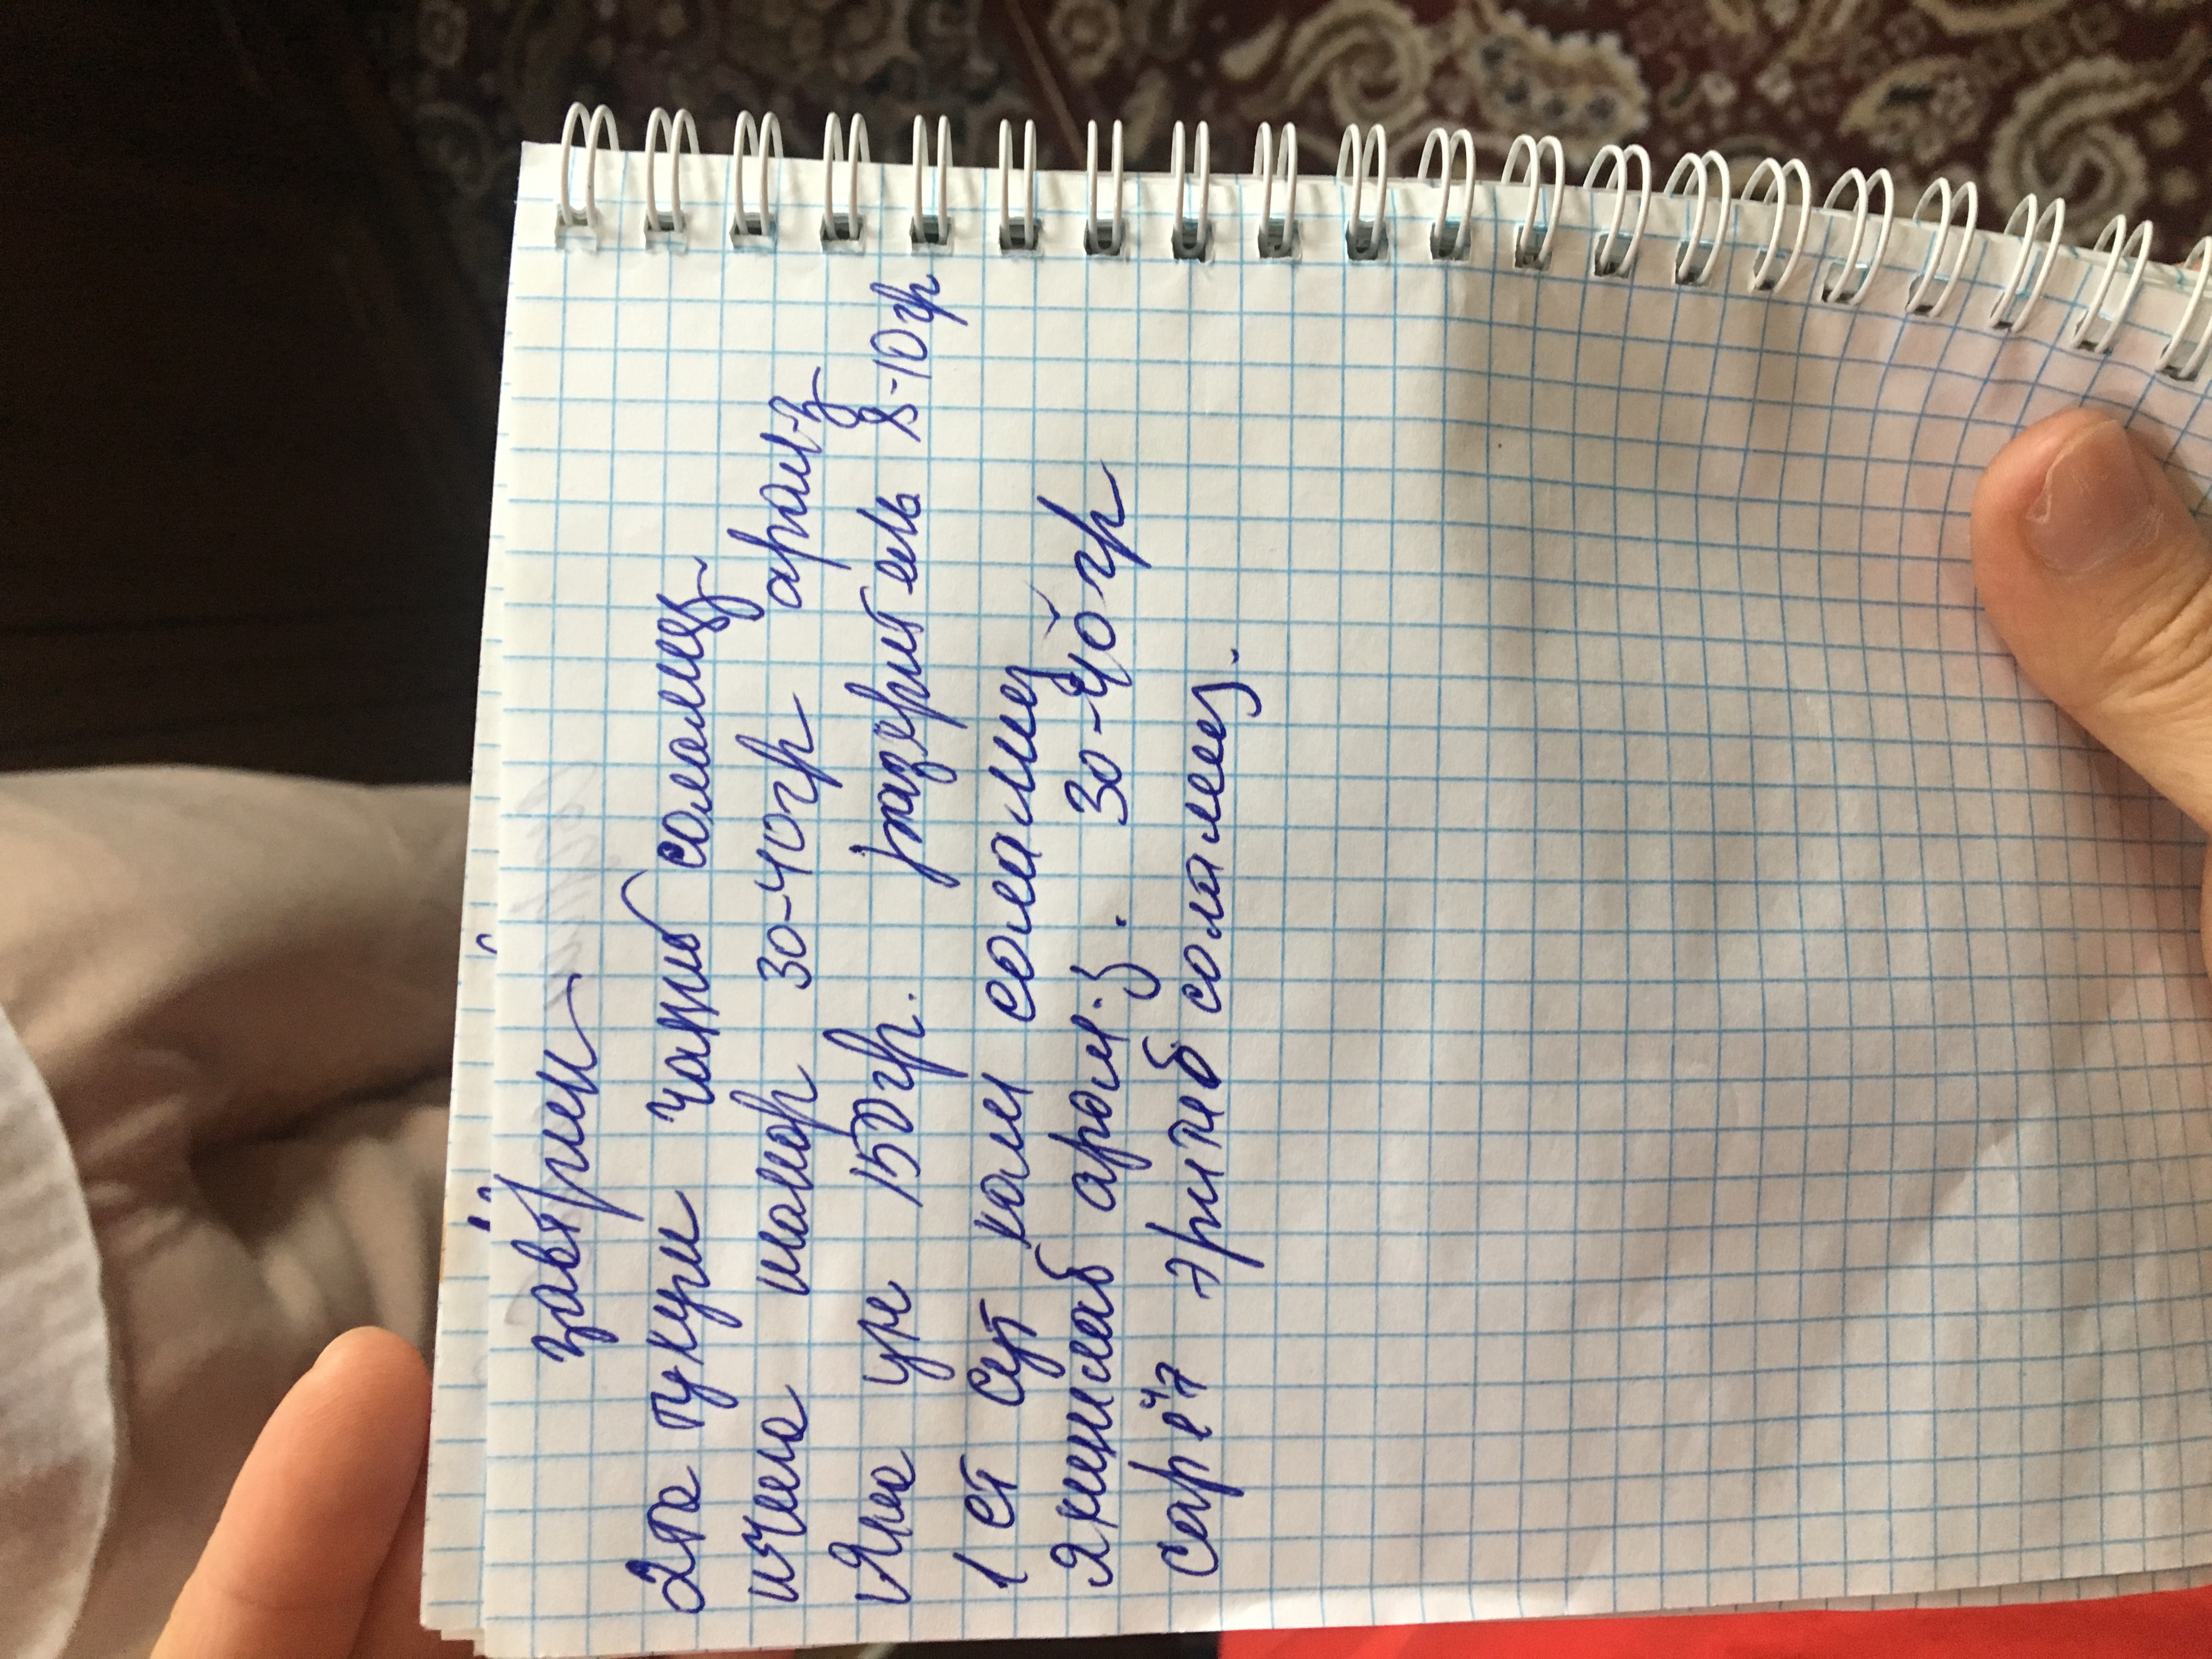 завтрик
2та тухум чапиб соламиз
ичига шакар 30-40гр арал-з
Яна ун 150гр. разрыхитель 8-10гр
1 ст сут хам соламиз
яхшилаб арал-з. 30-40гр
сарёг эритиб соламиз.